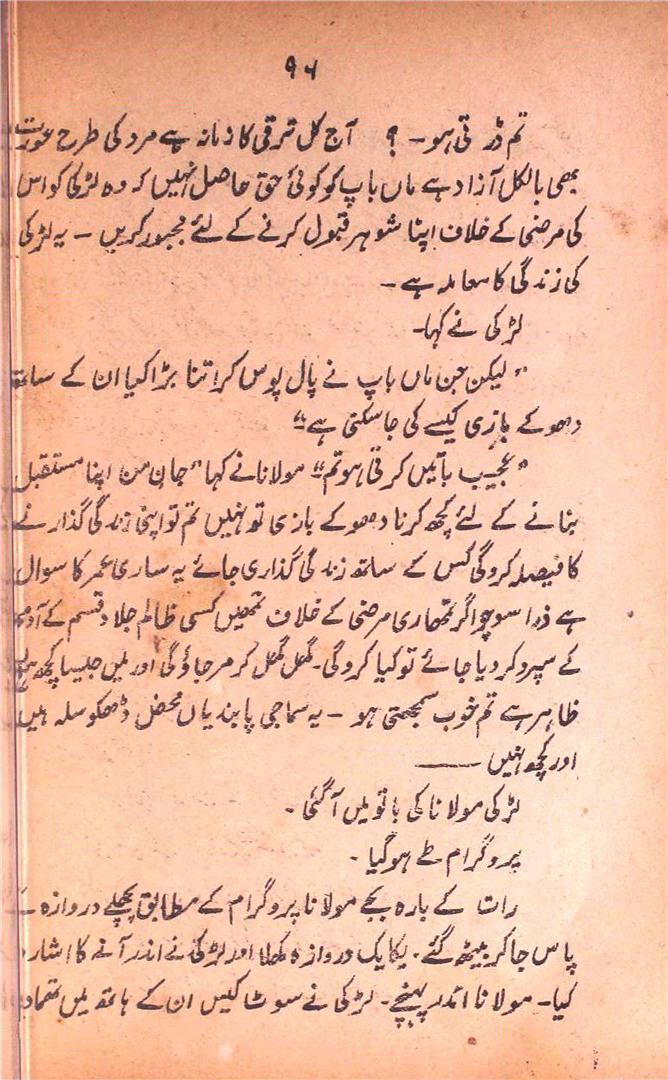 ۹۶
تم ڈرتی ہو ۔ ؟ آج کل ترقی کا زمانہ ہے مرد کی طرح عورت
بھی بالکل آزاد ہے ماں باپ کو کوئی حق حاصل نہیں کہ وہ لڑکی کو اس
کی مرضی کے خلاف اپنا شوہر قبول کرنے کے لئے مجبور کریں ۔ یہ لڑکی
کی زندگی کا معاملہ ہے ۔
لڑکی نے کہا۔
"لیکن جن ماں باپ نے پال پوس کر اتنا بڑا کیا ان کے ساتھ
دھوکے بازی کیسے کی جا سکتی ہے"
"عجیب باتیں کرتی ہو تم" مولانا نے کہا "جان من اپنا مستقبل
بنانے کے لئے کچھ کرنا دھوکے بازی تو نہیں تم تو اپنی زندگی گذارنے
کا فیصلہ کرو گی کس کے ساتھ زندگی گذاری جائے یہ ساری عمر کا سوال
ہے ذرا سوچو اگر تمھاری مرضی کے خلاف تمھیں کسی ظالم جلاد قسم کے آدمی
کے سپرد کر دیا جائے تو کیا کرو گی ۔ گھل گھل کر مر جاؤ گی اور میں جیسا کچھ ہوں
ظاہر ہے تم خوب سمجھتی ہو ۔ یہ سماجی پابندیاں محض ڈھکوسلہ ہیں
اور کچھ نہیں ——
لڑکی مولانا کی باتو میں آ گئی ۔
پروگرام طے ہو گیا ۔
رات کے بارہ بجے مولانا پروگرام کے مطابق پچھلے دروازہ کے
پاس جا کر بیٹھ گئے ۔ یکایک دروازہ کھلا اور لڑکی نے اندر آنے کا اشارہ
کیا ۔ مولانا اندر پہنچے ۔ لڑکی نے سوٹ کیس ان کے ہاتھ میں تھما دیا